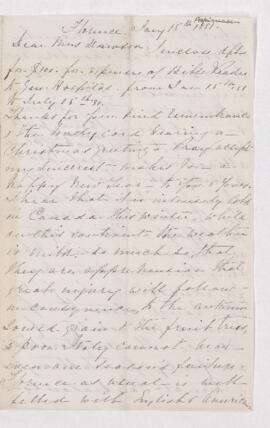 Florence, Jany 15th 1881.
Dear Miss Dawson I enclose
for for expenses of Bible Reader
to Gen. Hospital. from Jan 15th 81
to July 15th 81.
Thanks for your kind remembrance
& the lovely card bearing a
Christmas greeting & Pray accept
my sincerest wishes for a
happy New Year to you &
I hear that it is intensely cold
in Canada this winter, while
on this continent the weather
is mild, so much so, that
they are apprehension that
great injury will follow
in consequence, to the autumn
sowed grain & the fruit trees,
& poor Italy cannot bear
even one season's failure.
Florence as usual is well
filled with English & America